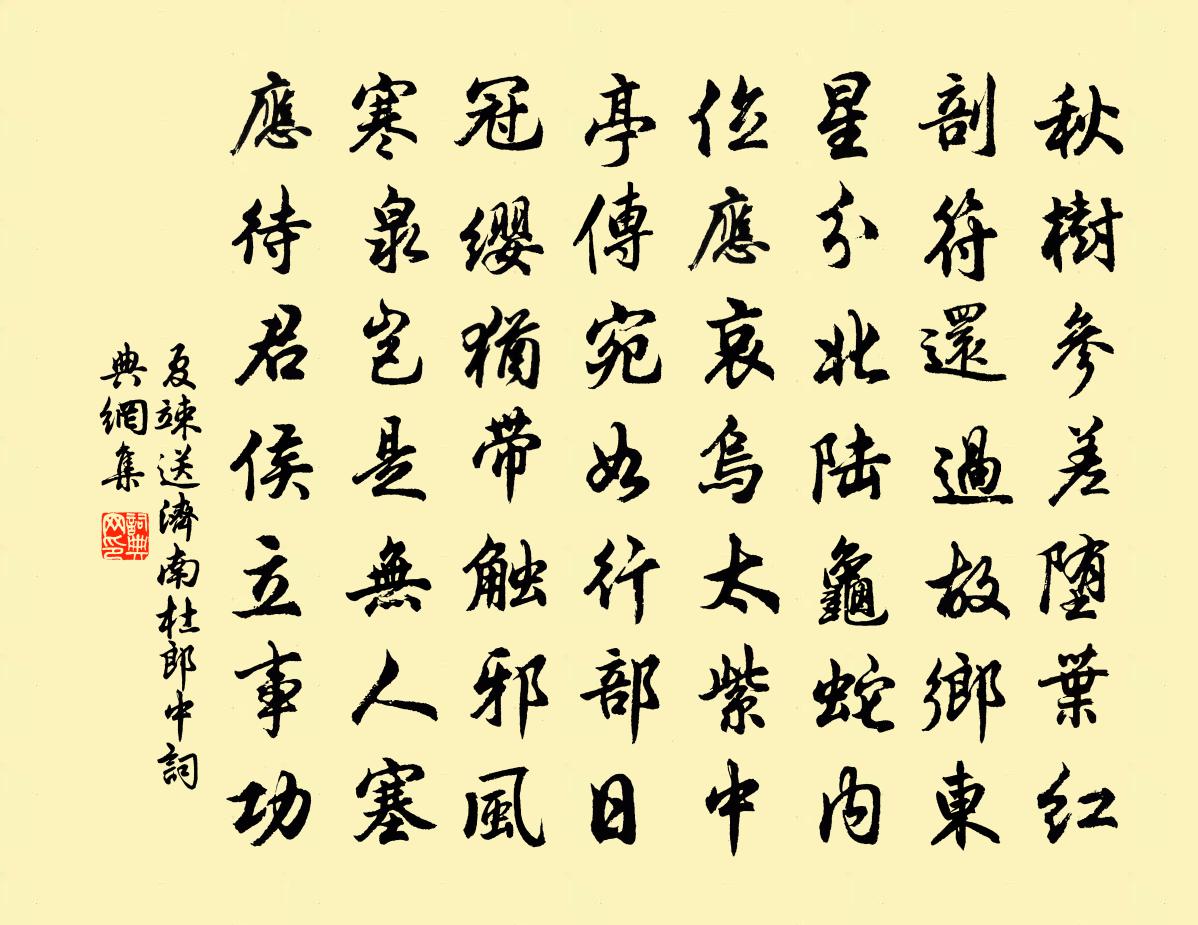 秋樹參差墮葉紅
剖符還過故鄉東
星分北陆龜蛇内
位應哀烏太紫中
亭傳宛如行部日
冠纓猶帶触邪風
寒泉豈是無人塞
應待君侯立事功
夏竦送濟南杜郎中詞
典網集
詞典